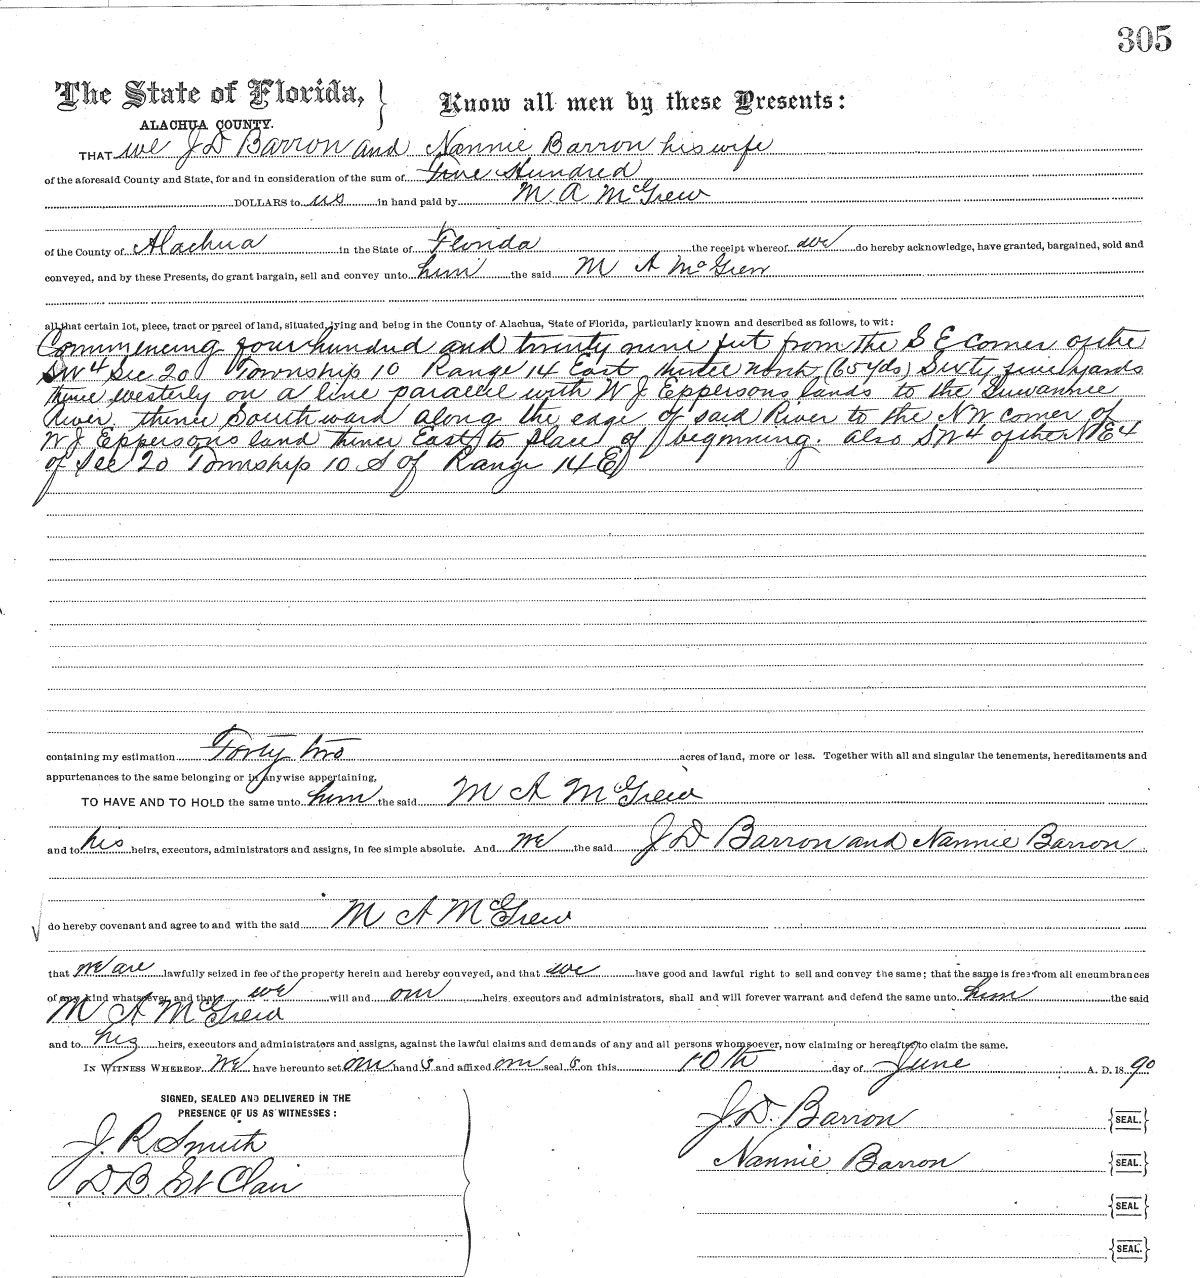 305
The State of Florida, } Know all men by these Presents:
ALACHUA COUNTY.
THAT we J D Barron and Nannie Barron his wife
of the aforesaid County and State, for and in consideration of the sum of Five Hundred
DOLLARS to us in hand paid by M. A McGrew
of the County of Alachua in the State of Florida the receipt whereof we do hereby acknowledge, have granted, bargained, sold and
conveyed, and by these Presents, do grant bargain, sell and convey unto him the said M A McGrew
all that certain lot, piece, tract or parcel of land, situated, lying and being in the County of Alachua, State of Florida, particularly known and described as follows, to wit:
Commencing four hundred and twenty nine feet from the S E corner of the
SW 4 Sec 20 Township 10 Range 14 East thence north (65 yds) Sixty five yards
thence westerly on a line parallel with W J Eppersons lands to the Suwannee
River, thence Southward along the edge of said River to the NW corner of
W J Eppersons land thence East to place of beginning. also SW 4 of the NE 4
of Sec 20 Township 10 S of Range 14 E
containing my estimation Forty two acres of land, more or less. Together with all and singular the tenements, hereditaments and
appurtenances to the same belonging or in anywise appertaining,
TO HAVE AND TO HOLD the same unto him the said M A McGrew
and to his heirs, executors, administrators and assigns, in fee simple absolute. And we the said J D Barron and Nannie Barron
do hereby covenant and agree to and with the said M A McGrew
that we are lawfully seized in fee of the property herein and hereby conveyed, and that we have good and lawful right to sell and convey the same; that the same is free from all encumbrances
of any kind whatsoever, and that we will and our heirs, executors and administrators, shall and will forever warrant and defend the same unto him the said
M A McGrew
and to his heirs, executors and administrators and assigns, against the lawful claims and demands of any and all persons whomsoever, now claiming or hereafter to claim the same.
IN WITNESS WHEREOF, we have hereunto set our hand s and affixed our seal s on this 10th day of June A. D. 1890
SIGNED, SEALED AND DELIVERED IN THE
PRESENCE OF US AS WITNESSES:
J. D. Barron {SEAL.}
J. R. Smith
Nannie Barron {SEAL.}
D. B. St Clair
{SEAL}
{SEAL.}